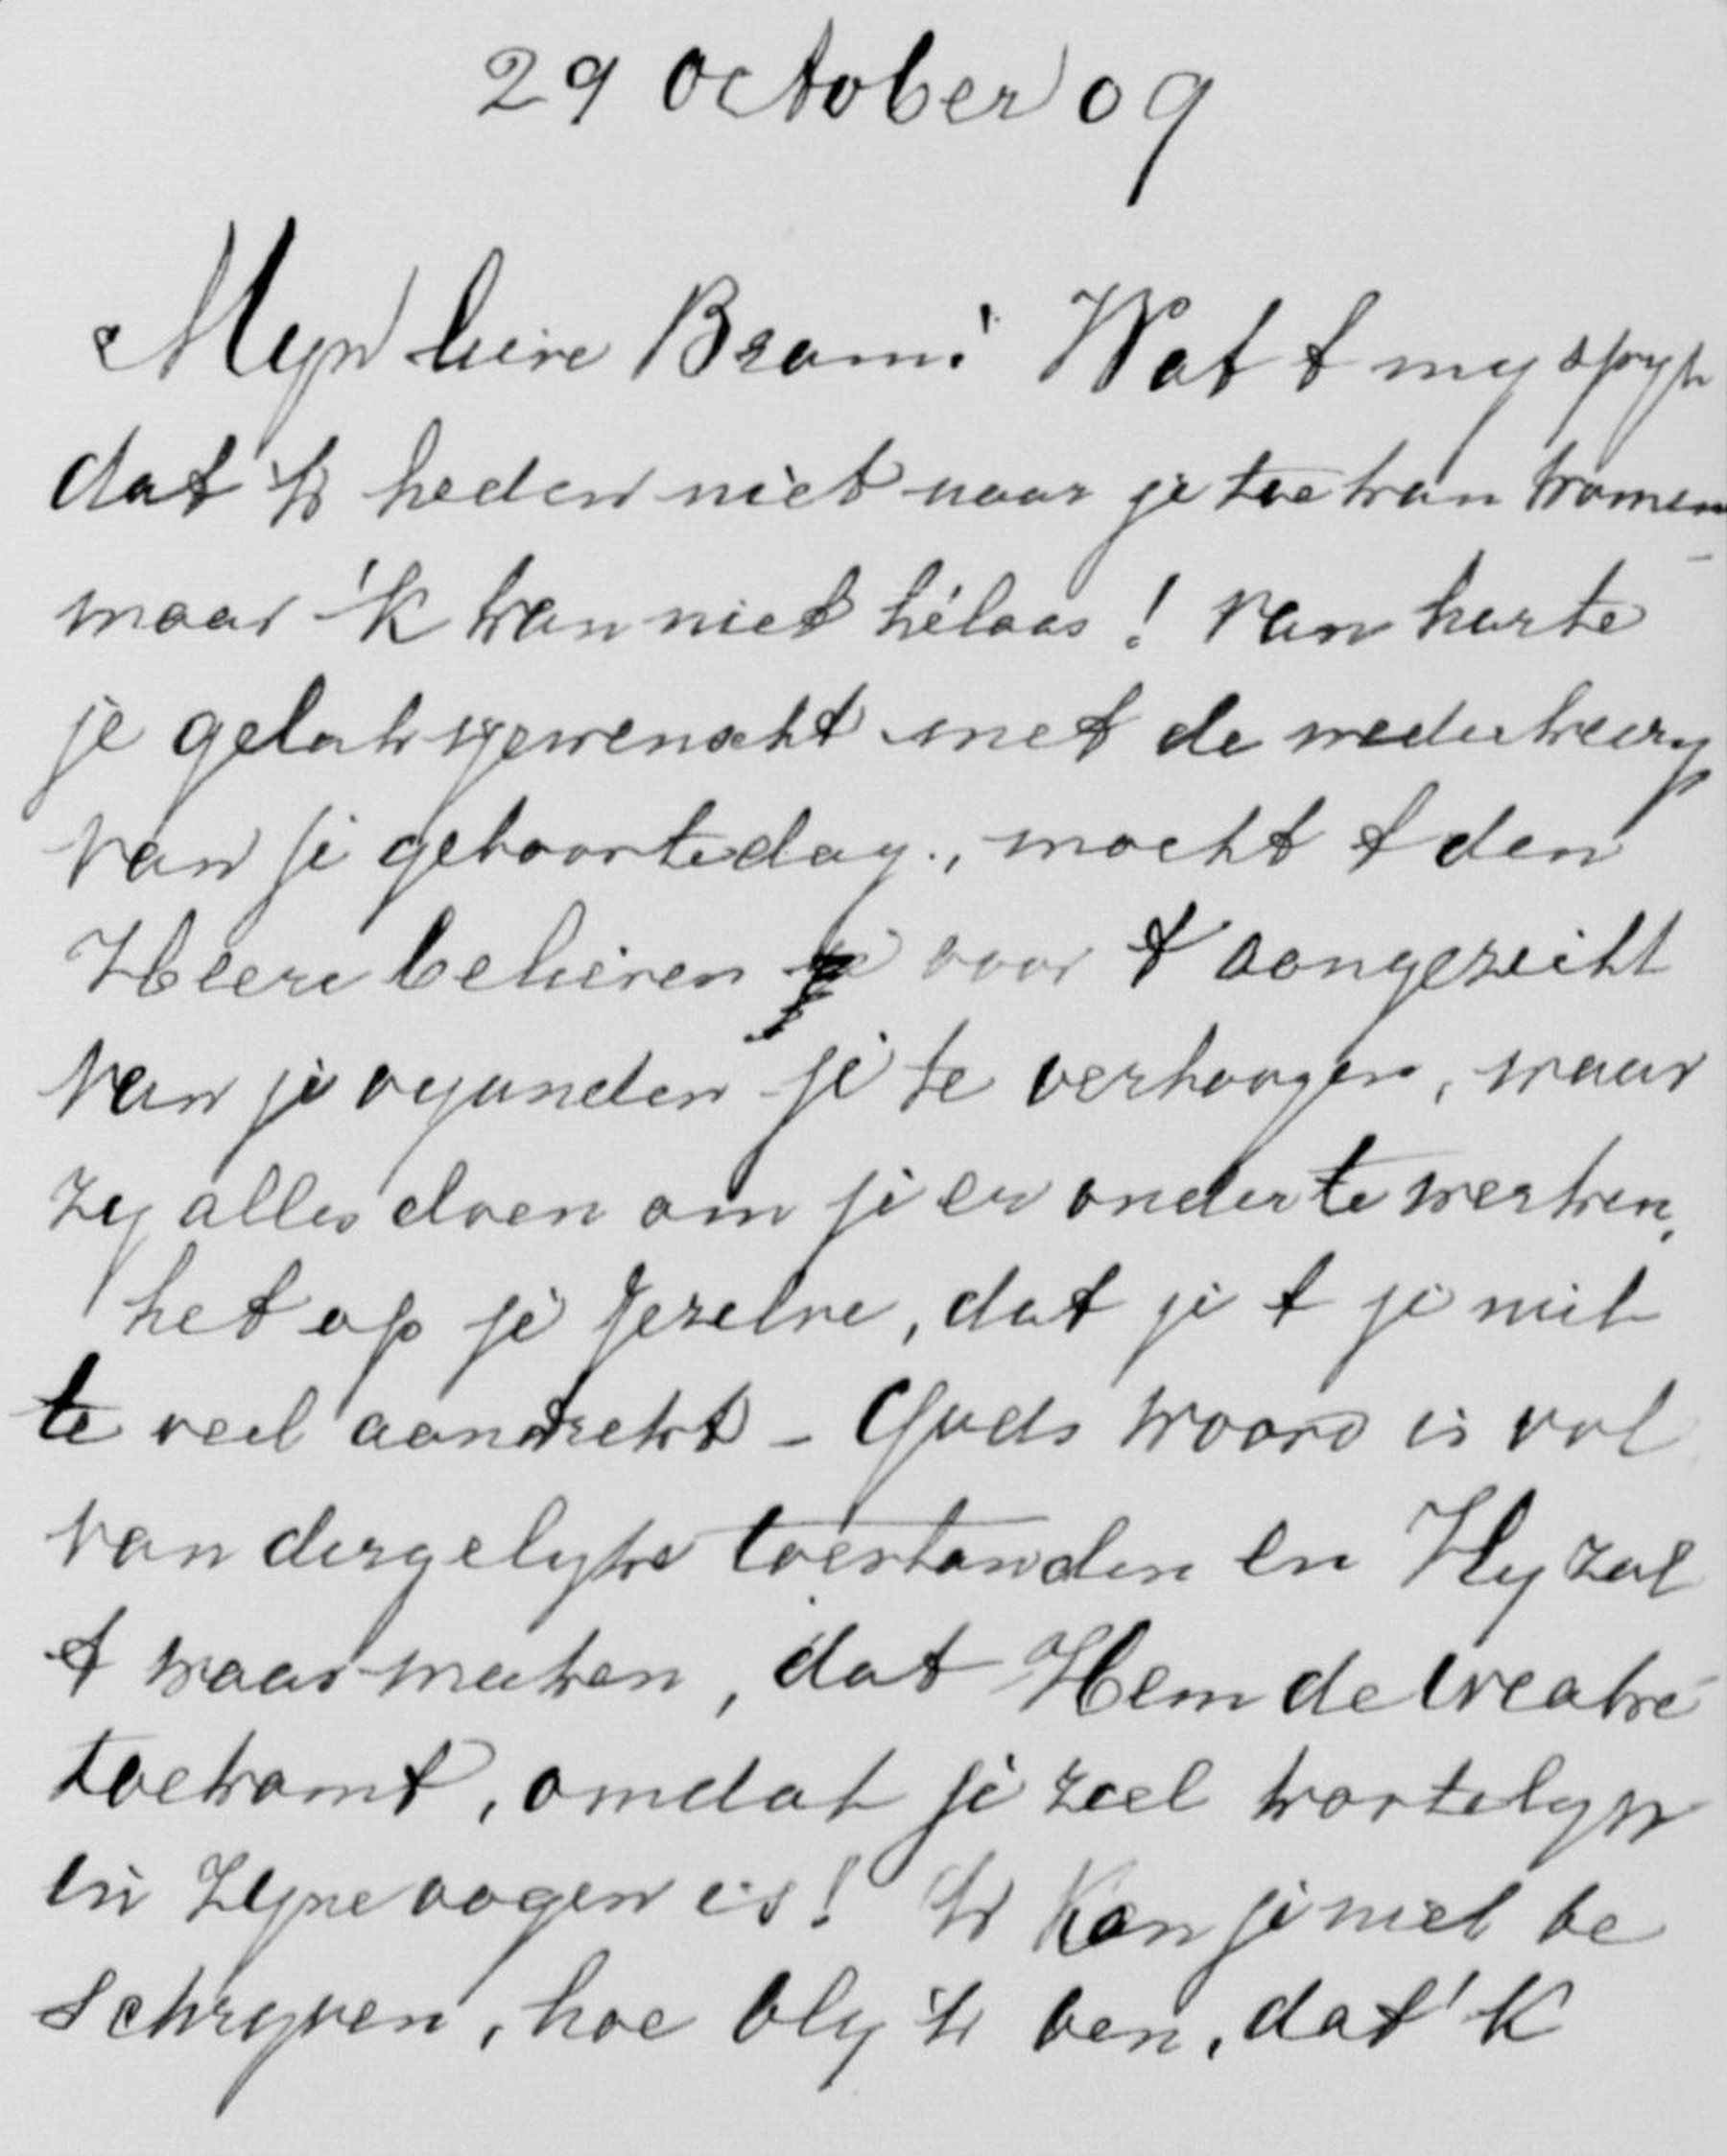 29 october 09
Mijn lieve Bram! Wat t mij spijt
dat 'k heden niet naar je toe kan komen
maar 'k kan niet hélaas! van harte
je geluk gewenscht met de wederkeering
van je geboortedag, mocht t den
Heere believen voor t aangezicht
van je vijanden je te verhoogen, waar
zij alles doen om je er onder te werken,
het op je gezelve, dat je t je niet
te veel aantrekt - Gods woord is vol
van dergelijke toestanden en Hij zal
t waarmaken, dat Hem de wrake
toekomt, omdat je ziel kostelijk
in Zijne oogen is! 'k Kan je niet be
schrijven, hoe blij 'k ben, dat 'k